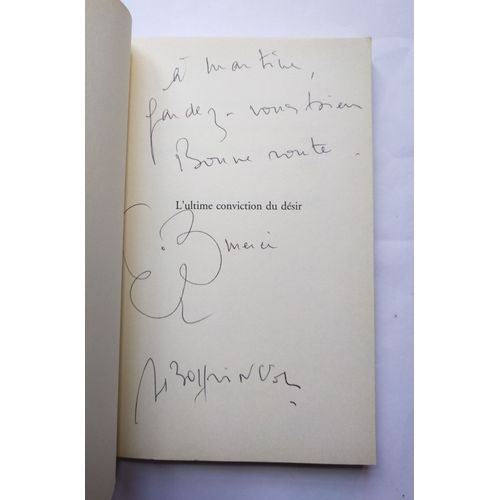 à Martine,
gardez-vous bien
Bonne route.
L'ultime conviction du désir
merci